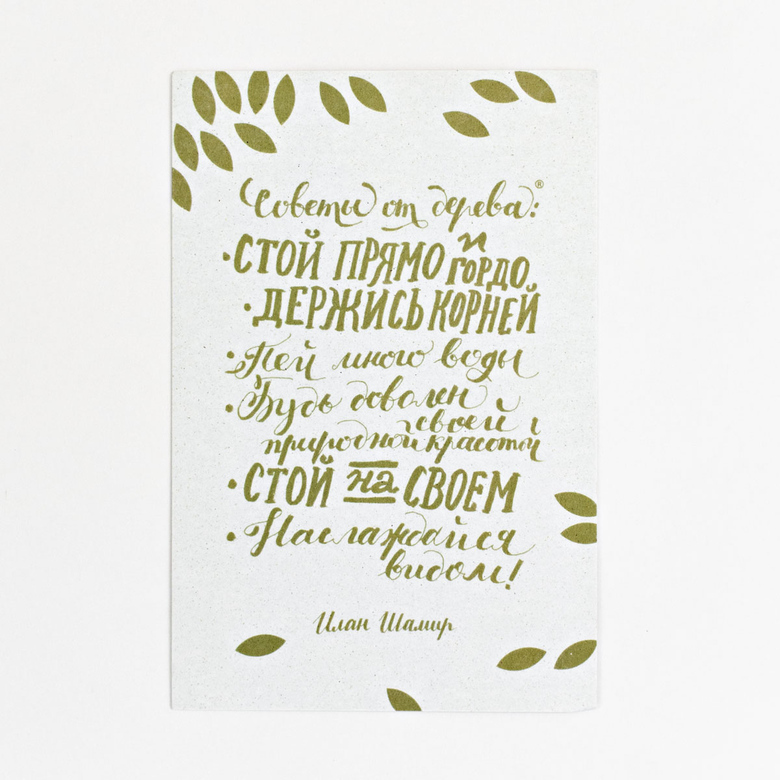 Советы от дерева:®
·СТОЙ ПРЯМО и ГОРДО
·ДЕРЖИСЬ КОРНЕЙ
·Пей много воды
·Будь доволен
своей
природной красотой
·СТОЙ на СВОЕМ
·Наслаждайся
видом!
Илан Шамир